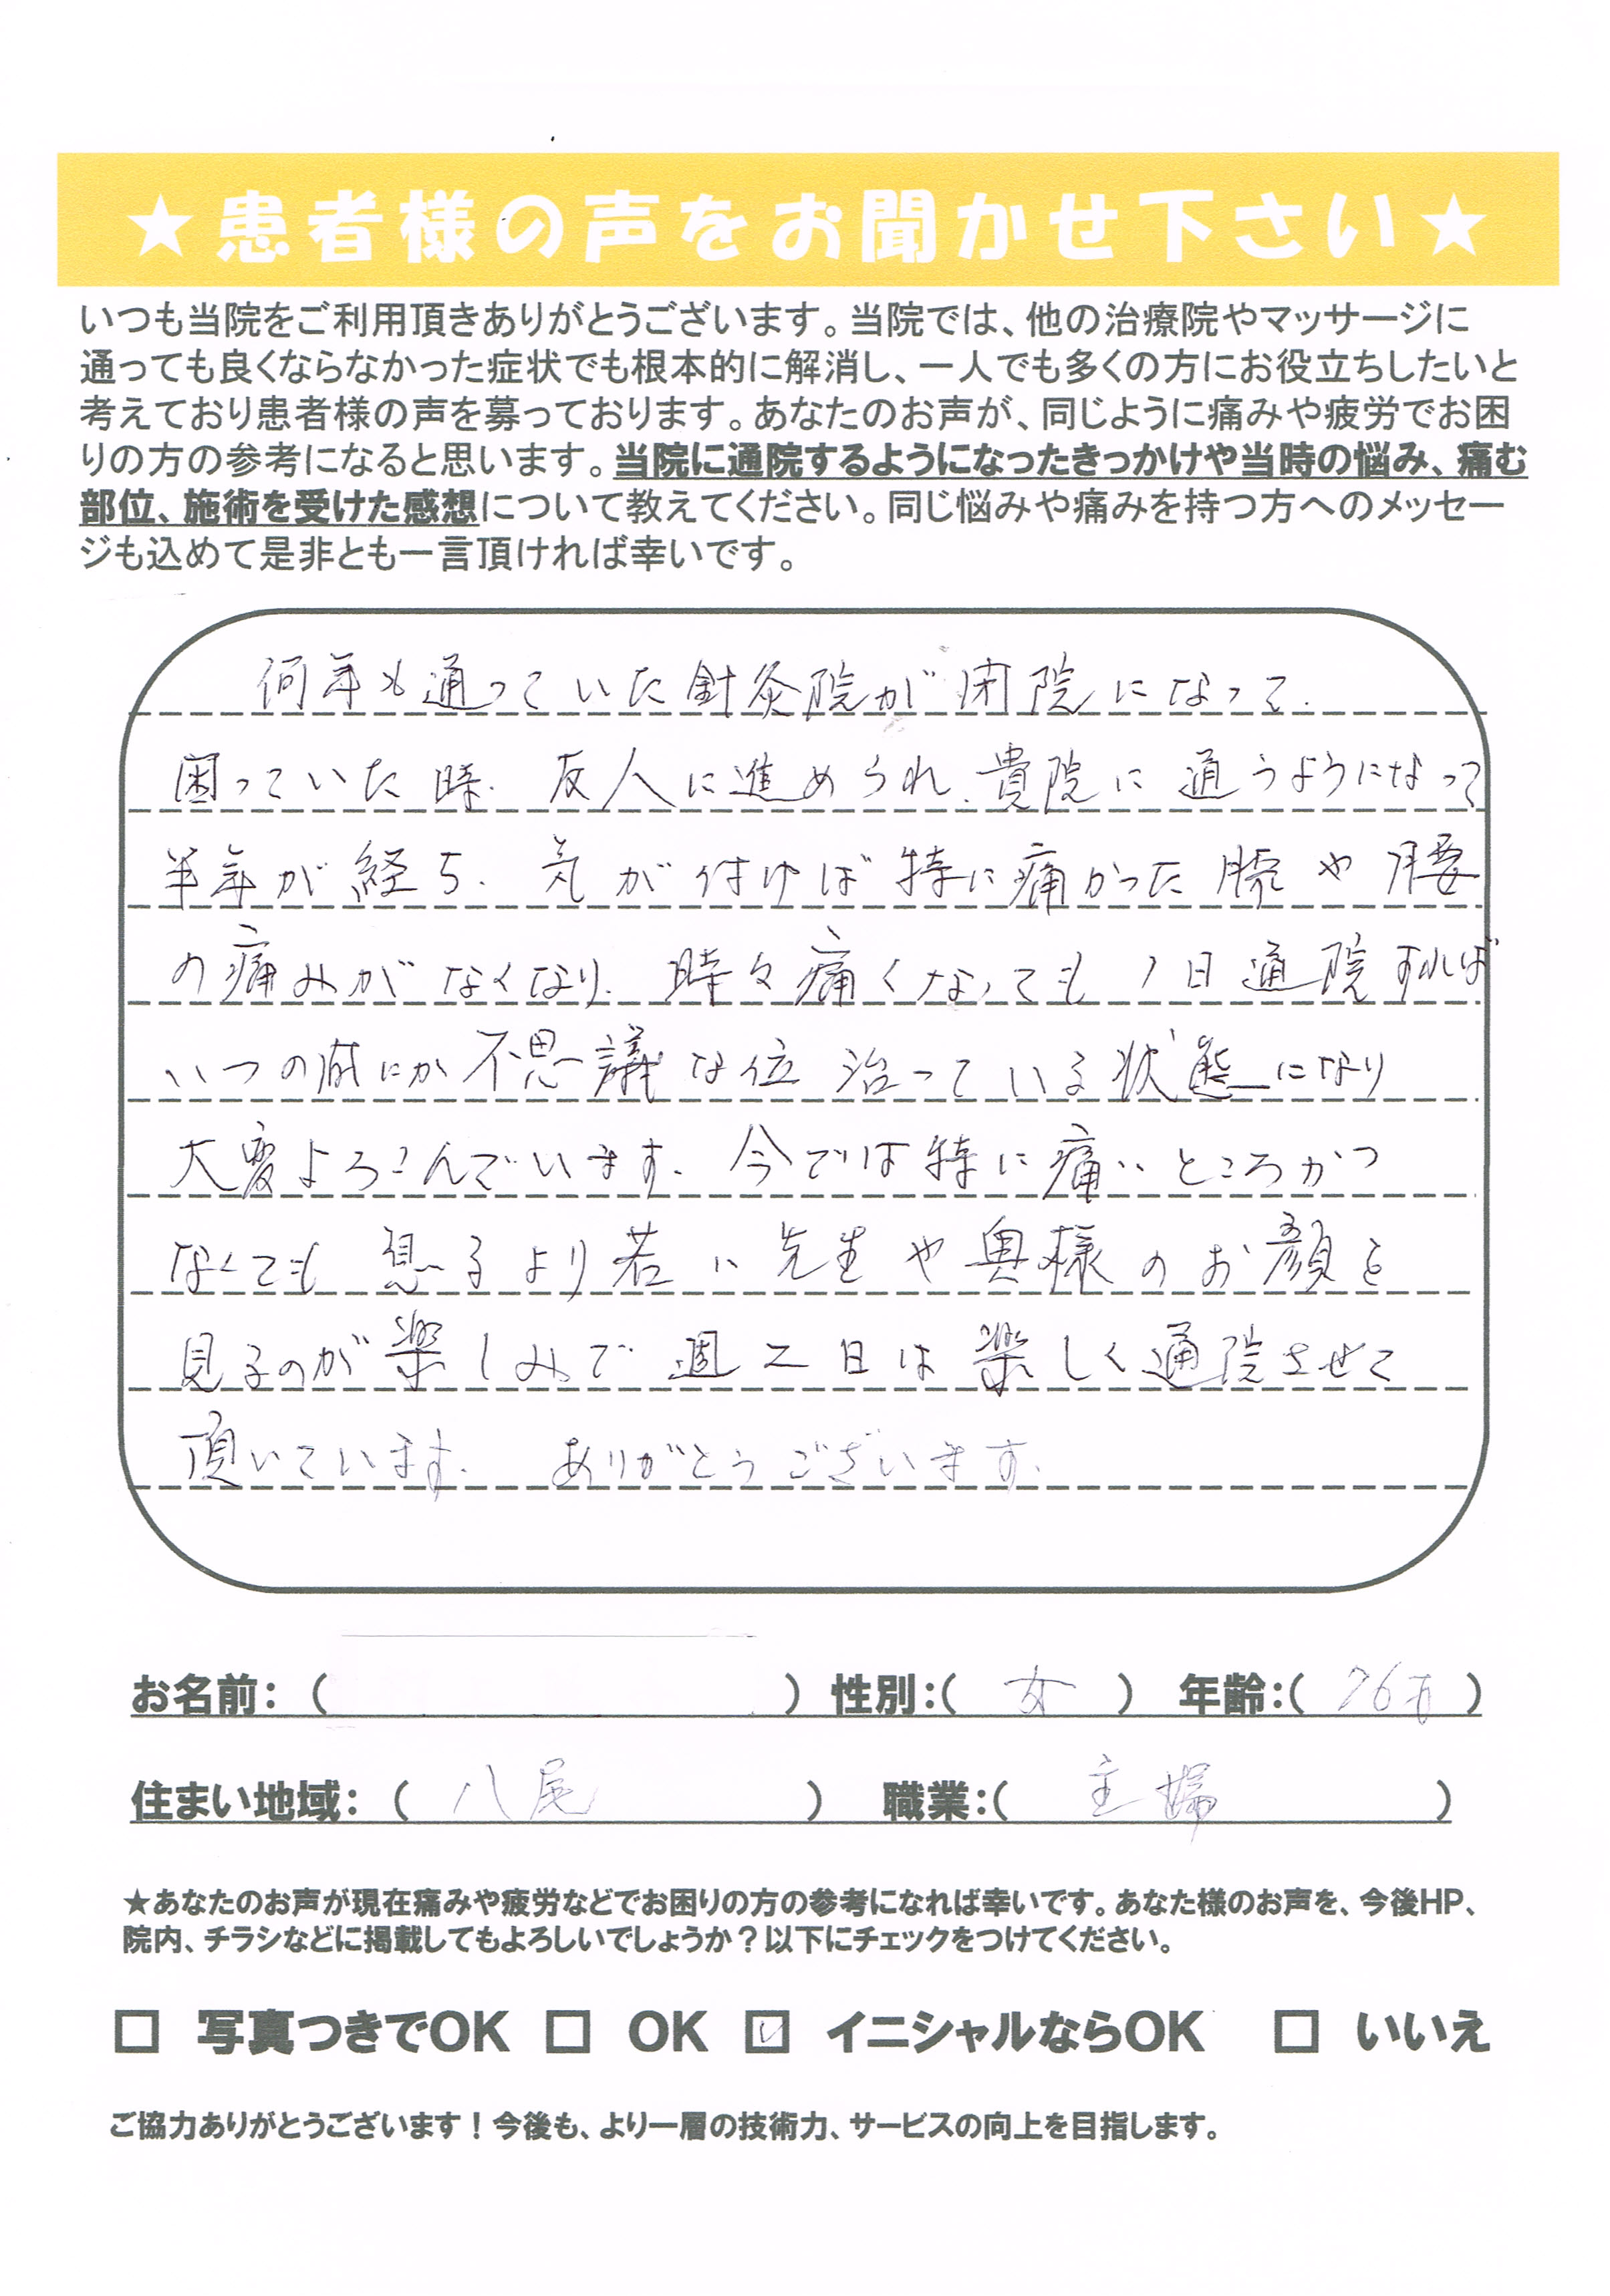 ★患者様の声をお聞かせ下さい★
いつも当院をご利用頂きありがとうございます。当院では、他の治療院やマッサージに
通っても良くならなかった症状でも根本的に解消し、一人でも多くの方にお役立ちしたいと
考えており患者様の声を募っております。あなたのお声が、同じように痛みや疲労でお困
りの方の参考になると思います。当院に通院するようになったきっかけや当時の悩み、痛む
部位、施術を受けた感想について教えてください。同じ悩みや痛みを持つ方へのメッセー
ジも込めて是非とも一言頂ければ幸いです。
何年も通っていた針灸院が閉院になって、
困っていた時、友人に進められ、貴院に通うようになって
半年が経ち、気が付けば特に痛かった腕や腰
の痛みがなくなり、時々痛くなっても1日通院すれば
いつの間にか不思議な位治っている状態になり
大変よろこんでいます。今では特に痛いところがつ
なくても るより若い先生や奥様のお顔を
見るのが楽しみで週二日は楽しく通院させて
頂いています。ありがとうございます。
お名前：（ ）性別：（女）年齢：（76才）
住まい地域：（八尾）職業：（主婦）
★あなたのお声が現在痛みや疲労などでお困りの方の参考になれば幸いです。あなた様のお声を、今後HP、
院内、チラシなどに掲載してもよろしいでしょうか？以下にチェックをつけてください。
□ 写真つきでOK □ OK ☑ イニシャルならOK □ いいえ
ご協力ありがとうございます！今後も、より一層の技術力、サービスの向上を目指します。